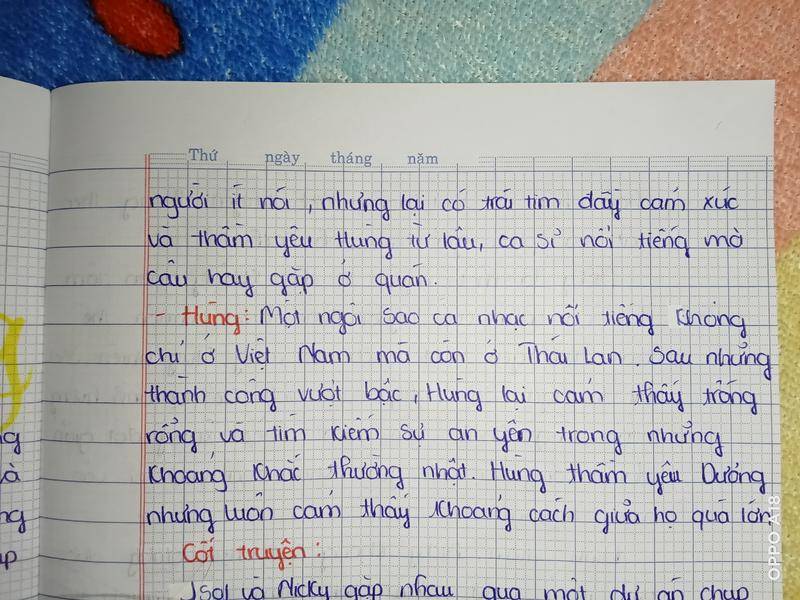 Thứ ngày tháng năm
người ít nói, nhưng lại có trái tim đầy cảm xúc
và thầm yêu Hùng từ lâu, ca sĩ nổi tiếng mà
cậu hay gặp ở quán.
- Hùng: Một ngôi sao ca nhạc nổi tiếng không
chỉ ở Việt Nam mà còn ở Thái Lan. Sau những
thành công vượt bậc, Hùng lại cảm thấy trống
rỗng và tìm kiếm sự an yên trong những
khoảng khắc thường nhật. Hùng thầm yêu Dương
nhưng luôn cảm thấy khoảng cách giữa họ quá lớn.
Cốt truyện:
Isol và Nicky gặp nhau qua một dự án chụp
OPPO A18